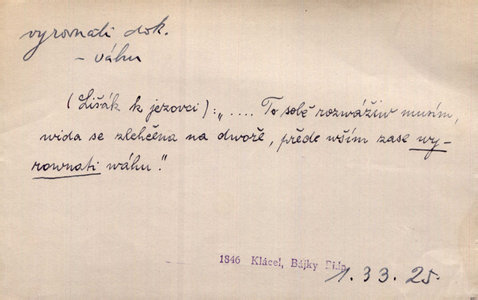 vyrovnati dok.
– váhu
(Lišák k jezovci): „.... To sobě rozwážiw musím,
wida se zlehčena na dwoře, přede wším zase wy-
rownati wáhu."
1846 Klácel, Bájky Bidp.
1.33.25